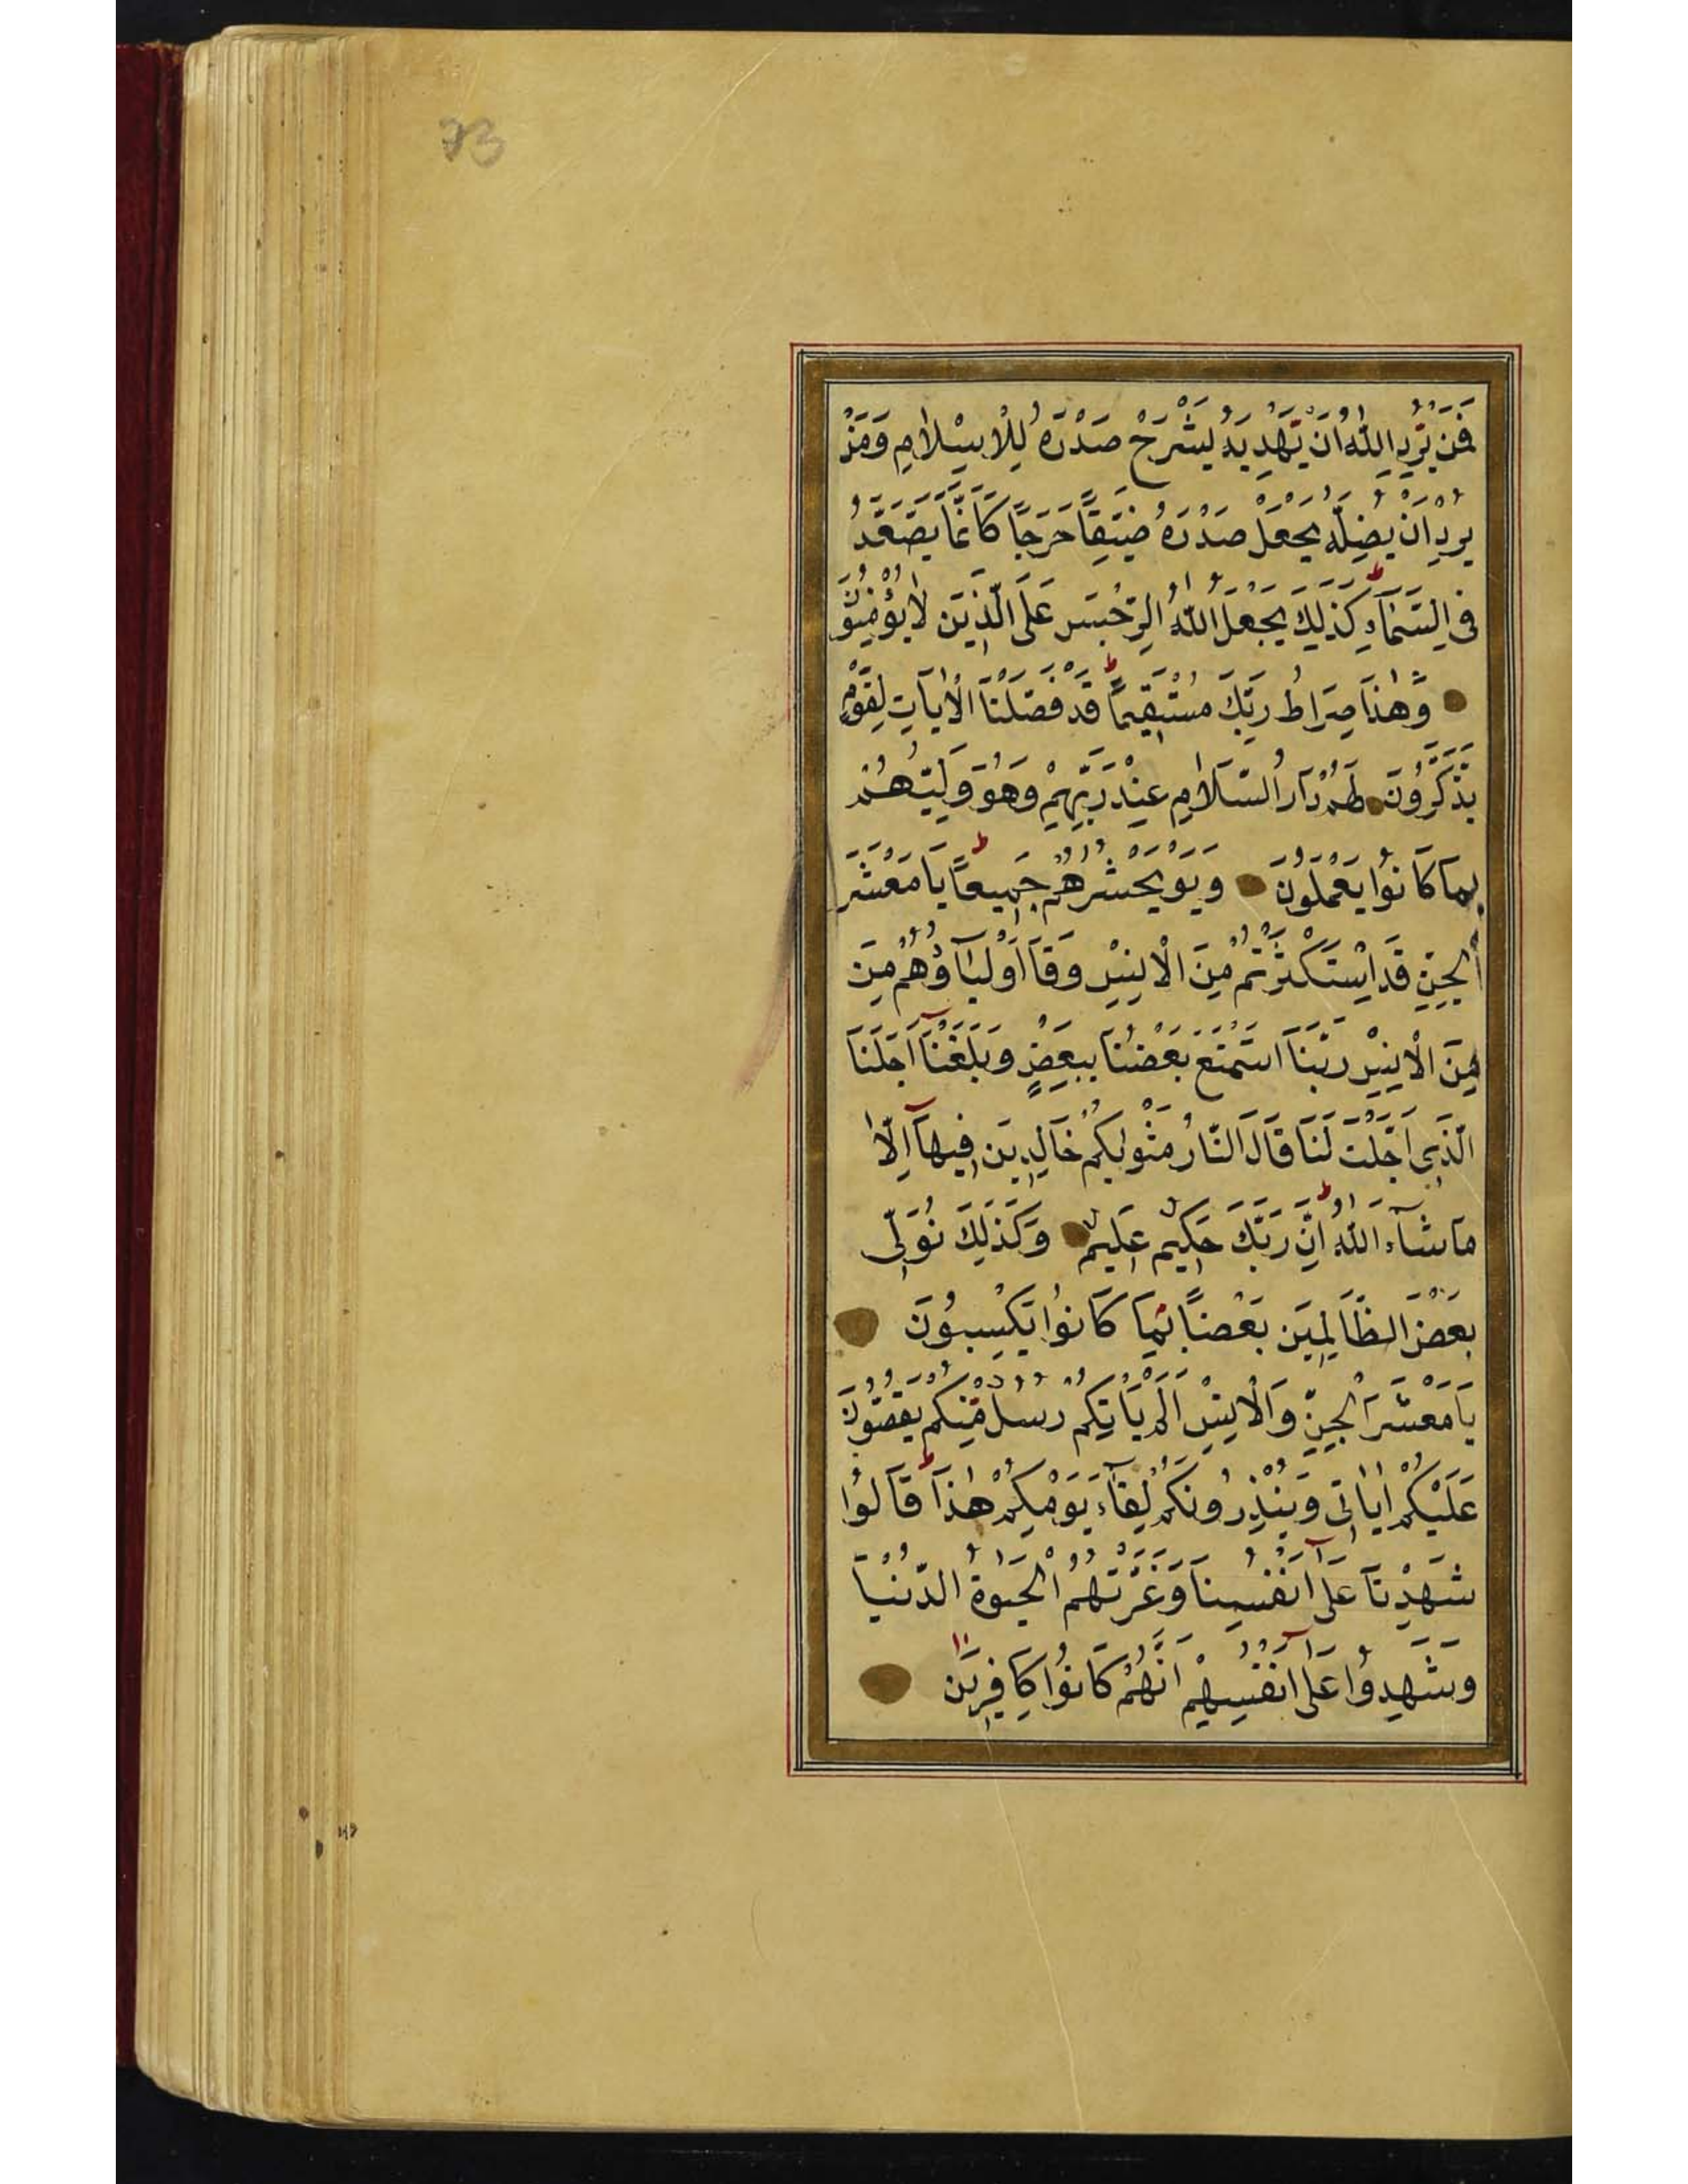 73
فَمَنْ يُرِدِ اللّٰهُ اَنْ يَهْدِيَهُ يَشْرَحْ صَدْرَهُ لِلْاِسْلَامِ وَمَنْ
يُرِدْ اَنْ يُضِلَّهُ يَجْعَلْ صَدْرَهُ ضَيِّقًا حَرَجًا كَاَنَّمَا يَصَّعَّدُ
فِى السَّمَآءِ كَذٰلِكَ يَجْعَلُ اللّٰهُ الرِّجْسَ عَلَى الَّذِينَ لَا يُؤْمِنُونَ
وَهٰذَا صِرَاطُ رَبِّكَ مُسْتَقِيمًا ط قَدْ فَصَّلْنَا الْاٰيَاتِ لِقَوْمٍ
يَذَّكَّرُونَ لَهُمْ دَارُ السَّلَامِ عِنْدَ رَبِّهِمْ وَهُوَ وَلِيُّهُمْ
بِمَا كَانُوا يَعْمَلُونَ وَيَوْ يَحْشُرُهُمْ جَمِيعًا ط يَا مَعْشَرَ
الْجِنِّ قَدِ اسْتَكْثَرْتُمْ مِنَ الْاِنْسِ وَقَا اَوْلِيَآؤُهُمْ مِنَ
مِنَ الْاِنْسِ رَبَّنَا اسْتَمْتَعَ بَعْضُنَا بِبَعْضٍ وَبَلَغْنَآ اَجَلَنَا
الَّذِى اَجَّلْتَ لَنَا قَالَ النَّارُ مَثْوٰيكُمْ خَالِدِينَ فِيهَآ اِلَّا
مَا شَآءَ اللّٰهُ ط اِنَّ رَبَّكَ حَكِيمٌ عَلِيمٌ وَكَذٰلِكَ نُوَلِّى
بَعْضَ الظَّالِمِينَ بَعْضًا بِمَا كَانُوا يَكْسِبُونَ
يَا مَعْشَرَ الْجِنِّ وَالْاِنْسِ اَلَمْ يَاْتِكُمْ رُسُلٌ مِنْكُمْ يَقُصُّونَ
عَلَيْكُمْ اٰيَاتِى وَيُنْذِرُونَكُمْ لِقَآءَ يَوْمِكُمْ هٰذَا ط قَالُوا
شَهِدْنَا عَلٰٓى اَنْفُسِنَا وَغَرَّتْهُمُ الْحَيٰوةُ الدُّنْيَا
وَشَهِدُوا عَلٰٓى اَنْفُسِهِمْ اَنَّهُمْ كَانُوا كَافِرِينَ